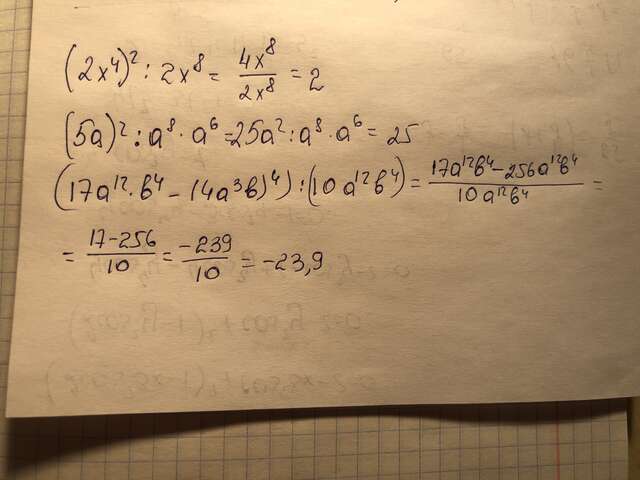 (2x⁴)² : 2x⁸ = 4x⁸/2x⁸ = 2
(5a)² : a⁸ · a⁶ = 25a² : a⁸ · a⁶ = 25
(17a¹² · b⁴ − (4a³b)⁴) : (10a¹²b⁴) = 17a¹²b⁴ − 256a¹²b⁴/10a¹²b⁴ =
= 17−256/10 = −239/10 = −23,9